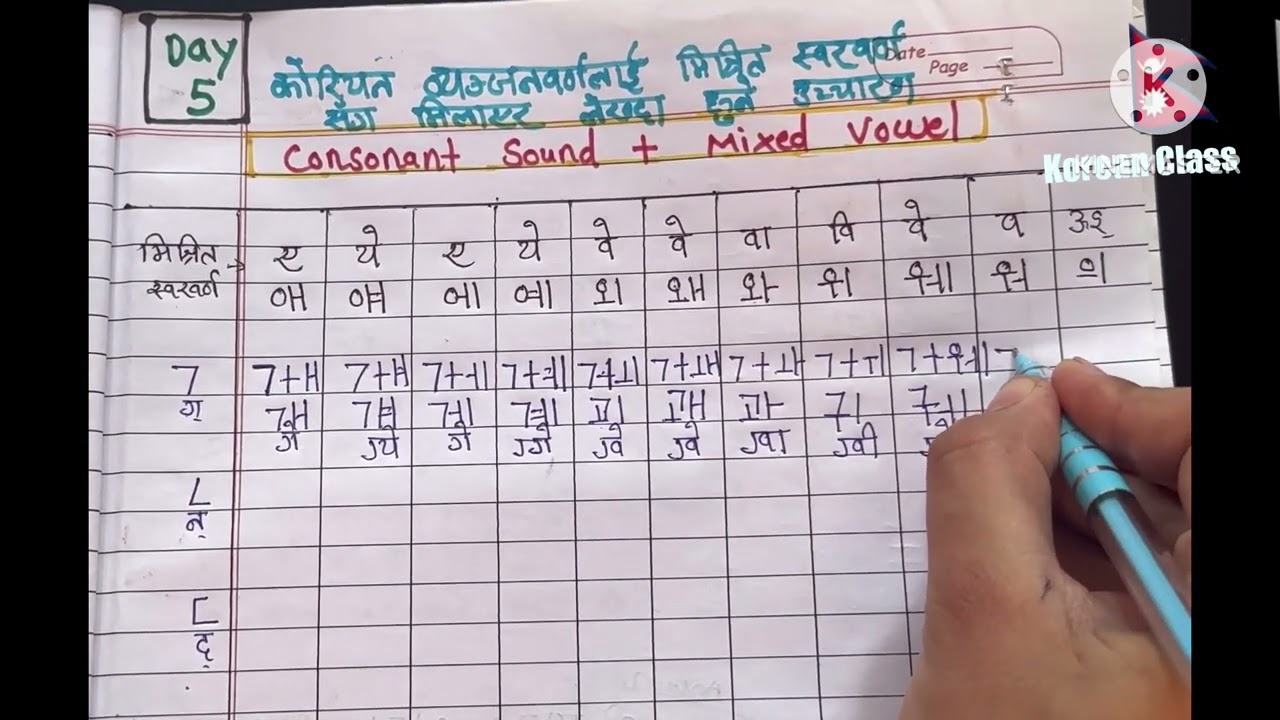 Day
5
Date
Page
कोरियन व्यन्जनवर्णलाई मिश्रित स्वरवर्ण
सँग मिलाएर लेख्दा हुने उच्चारण
Consonant Sound + Mixed Vowel
Korean Class
मिश्रित स्वरवर्ण → ए ये ए ये वे वे वा वि वे व ऊइ
애 얘 에 예 외 왜 와 위 웨 워 의
ㄱ ㄱ+ㅐ ㄱ+ㅒ ㄱ+ㅔ ㄱ+ㅖ ㄱ+ㅚ ㄱ+ㅙ ㄱ+ㅘ ㄱ+ㅟ ㄱ+웨 ㄱ
ग् 개 걔 게 계 괴 괘 과 귀 궤
गे ग्ये गे ग्गे ग्वे ग्वे ग्वा ग्वी
ㄴ
न्
ㄷ
द्